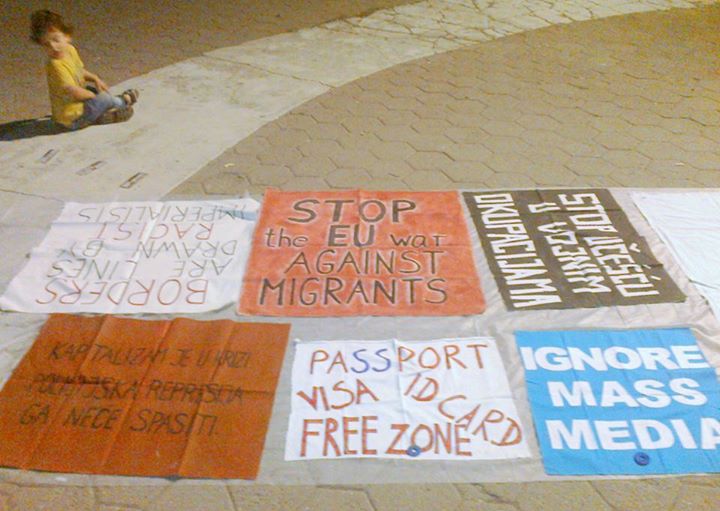 BORDERS
ARE LINES
DRAWN BY
RACIST
IMPERIALISTS
STOP
the EU war
AGAINST
MIGRANTS
STOP UČEŠĆU
U VOJNIM
OKUPACIJAMA
KAPITALIZAM JE U KRIZI
POLICIJSKA REPRESIJA
GA NEĆE SPASITI.
PASSPORT
VISA ID CARD
FREE ZONE
IGNORE
MASS
MEDIA